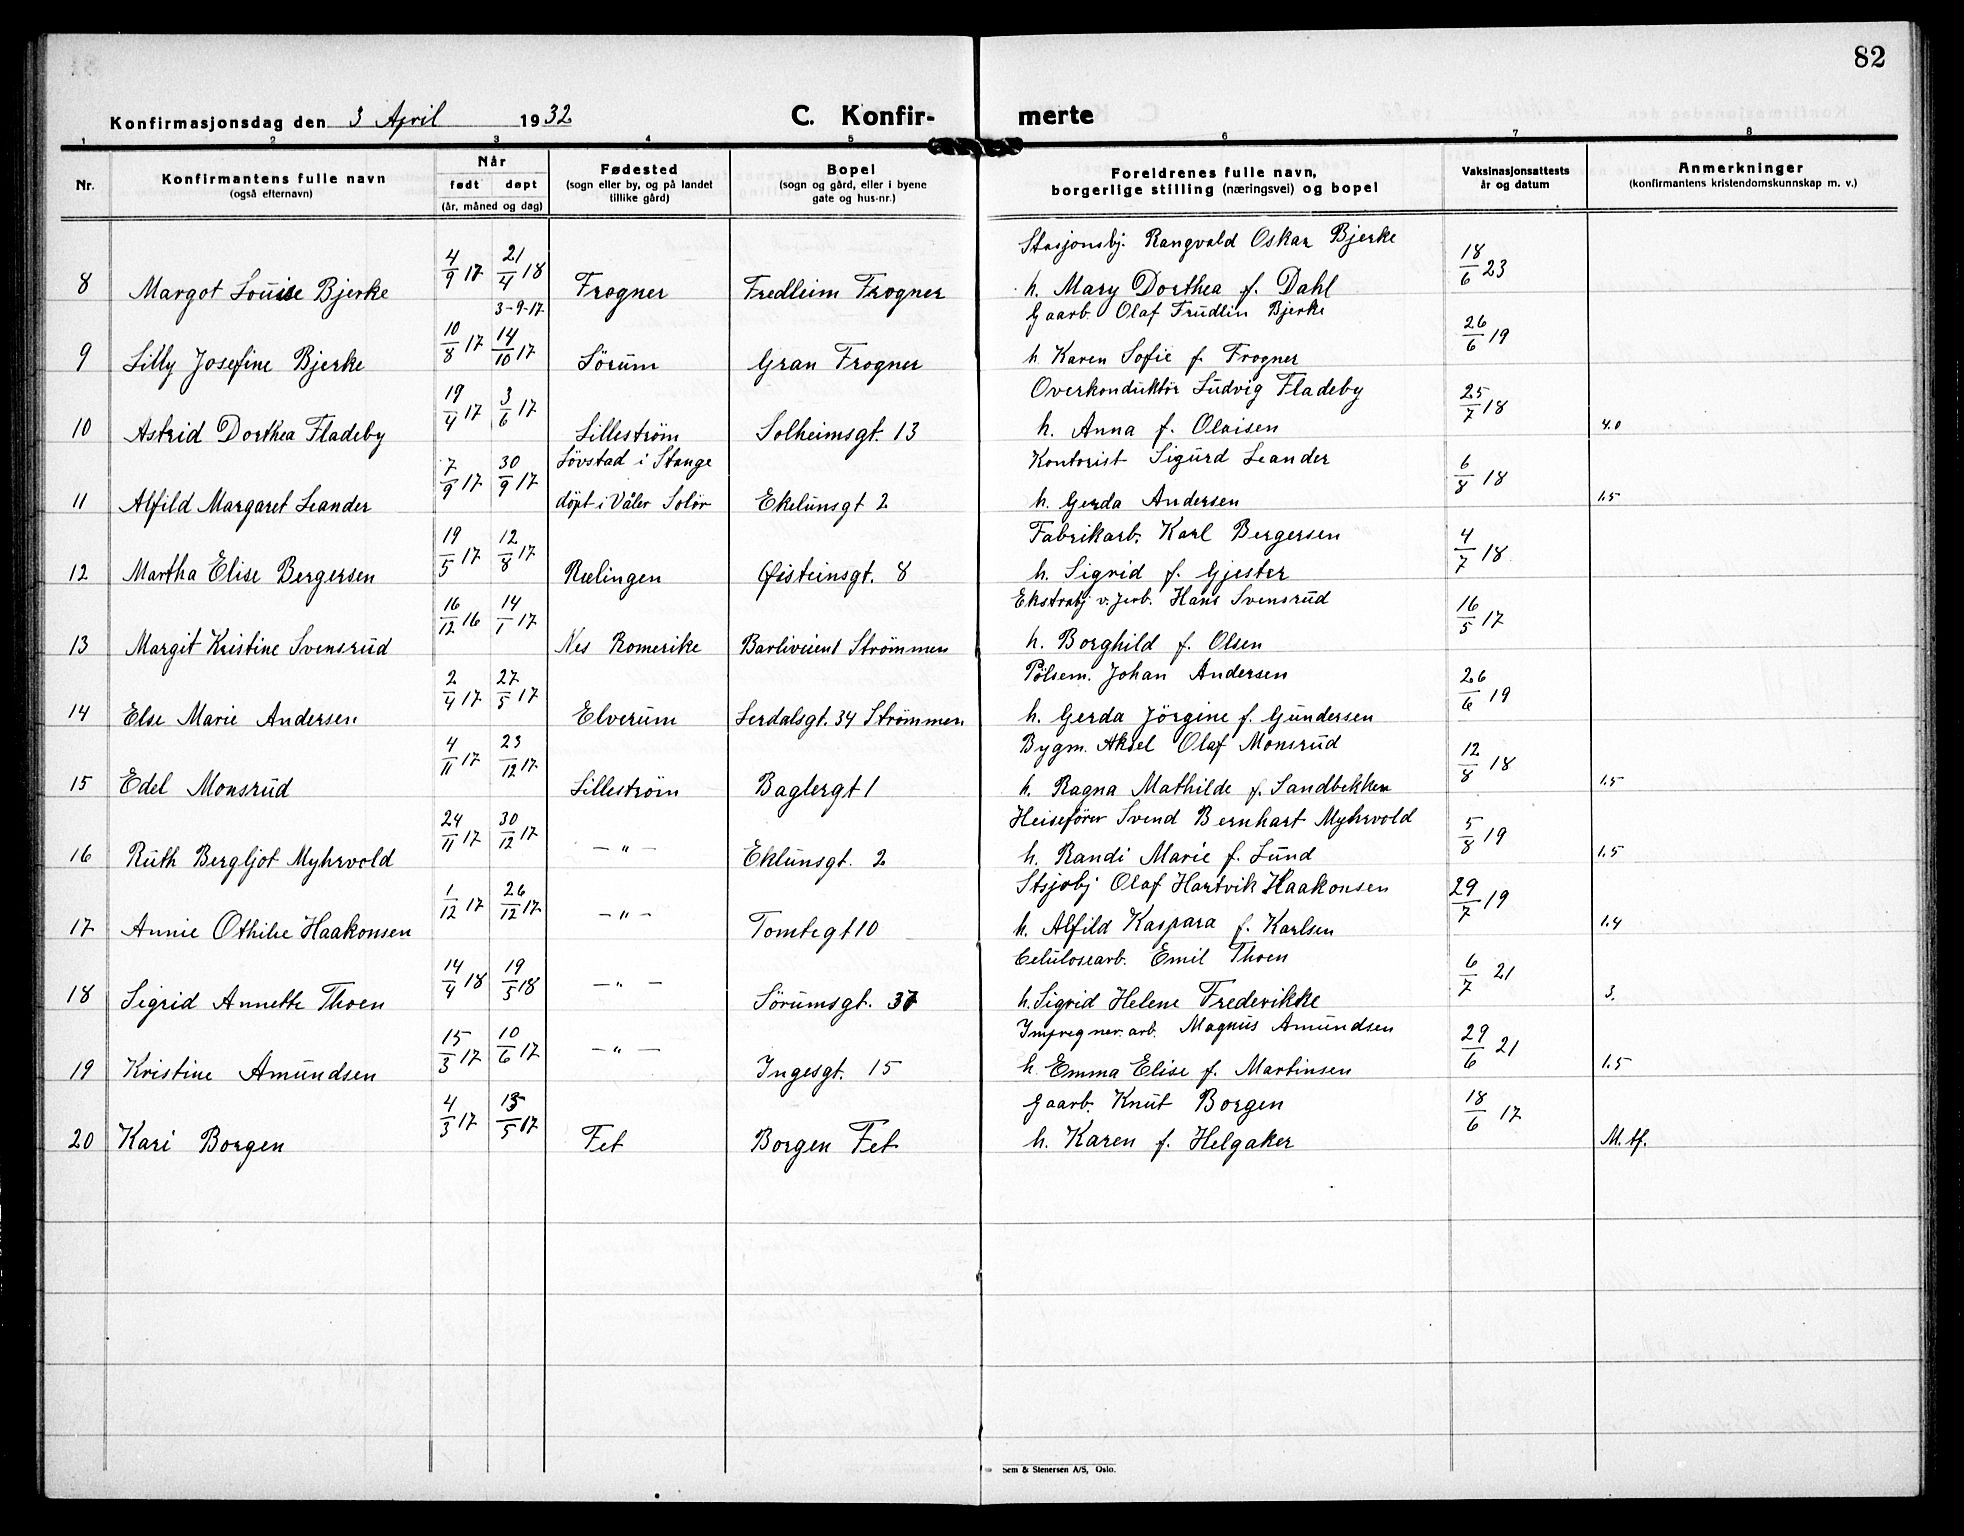 82
Konfirmasjonsdag den 3 April 1932 C. Konfir- merte
1 2 3 4 5 6 7 8
Nr. Konfirmantens fulle navn (også efternavn) Når født døpt (år, måned og dag) Fødested (sogn eller by, og på landet tillike gård) Bopel (sogn og gård, eller i byene gate og hus-nr.) Foreldrenes fulle navn, borgerlige stilling (næringsvei) og bopel Vaksinasjonsattests år og datum Anmerkninger (konfirmantens kristendomskunnskap m. v.)
8 Margot Louise Bjerke 4/9 17 21/4 18 Frogner Fredheim Frogner Stasjonsbj. Rangvald Oskar Bjerke
h. Mary Dorthea f. Dahl 18/6 23
9 Lilly Josefine Bjerke 10/8 17 3-9-17 14/10 17 Sørum Gran Frogner Gaarb. Olaf Frudlin Bjerke
h. Karen Sofie f. Frogner 26/6 19
10 Astrid Dorthea Fladeby 19/4 17 3/6 17 Lillestrøm Solheimsgt. 13 Overkonduktør Ludvig Fladeby
h. Anna f. Olaisen 25/7 18 4.0
11 Alfild Margaret Leander 7/9 17 30/9 17 Løvstad i Stange
døpt i Våler Solør Ekelunsgt 2 Kontorist Sigurd Leander
h. Gerda Andersen 6/8 18 1.5
12 Martha Elise Bergersen 19/5 17 12/8 17 Rælingen Øisteinsgt. 8 Fabrikarb. Karl Bergersen
h. Sigrid f. Gjester 4/7 18
13 Margit Kristine Svensrud 16/12 16 14/1 17 Nes Romerike Barliveient Strømmen Ekstrabj v. Jerb. Hans Svensrud
h. Borghild f. Olsen 16/5 17
14 Else Marie Andersen 2/4 17 27/5 17 Elverum Lerdalsgt. 34 Strømmen Pølsem. Johan Andersen
h. Gerda Jörgine f. Gundersen 26/6 19
15 Edel Monsrud 4/11 17 23/12 17 Lillestrøm Baglergt 1 Bygm. Aksel Olaf Monsrud
h. Ragna Mathilde f. Sandbekken 12/8 18 1.5
16 Ruth Bergljot Myhrvold 24/11 17 30/12 17 — " — Eklunsgt. 2 Heisefører Svend Bernhart Myhrvold
h. Randi Marie f. Lund 5/8 19 1.5
17 Annie Othilie Haakonsen 1/12 17 26/12 17 — " — Tomtegt 10 Stsjobj Olaf Hartvik Haakonsen
h. Alfild Kaspara f. Karlsen 29/7 19 1.4
18 Sigrid Annette Thoen 14/4 18 19/5 18 — " — Sørumsgt. 37 Celulosearb. Emil Thoen
h. Sigrid Helene Frederikke 6/7 21 3.
19 Kristine Amundsen 15/3 17 10/6 17 — " — Ingesgt. 15 Impregner. arb. Magnus Amundsen
h. Emma Elise f. Martinsen 29/6 21 1.5
20 Kari Borgen 4/3 17 13/5 17 Fet Borgen Fet Gaarb. Knut Borgen
h. Karen f. Helgaker 18/6 17 M. tf.
Sem & Stenersen A/S, Oslo.